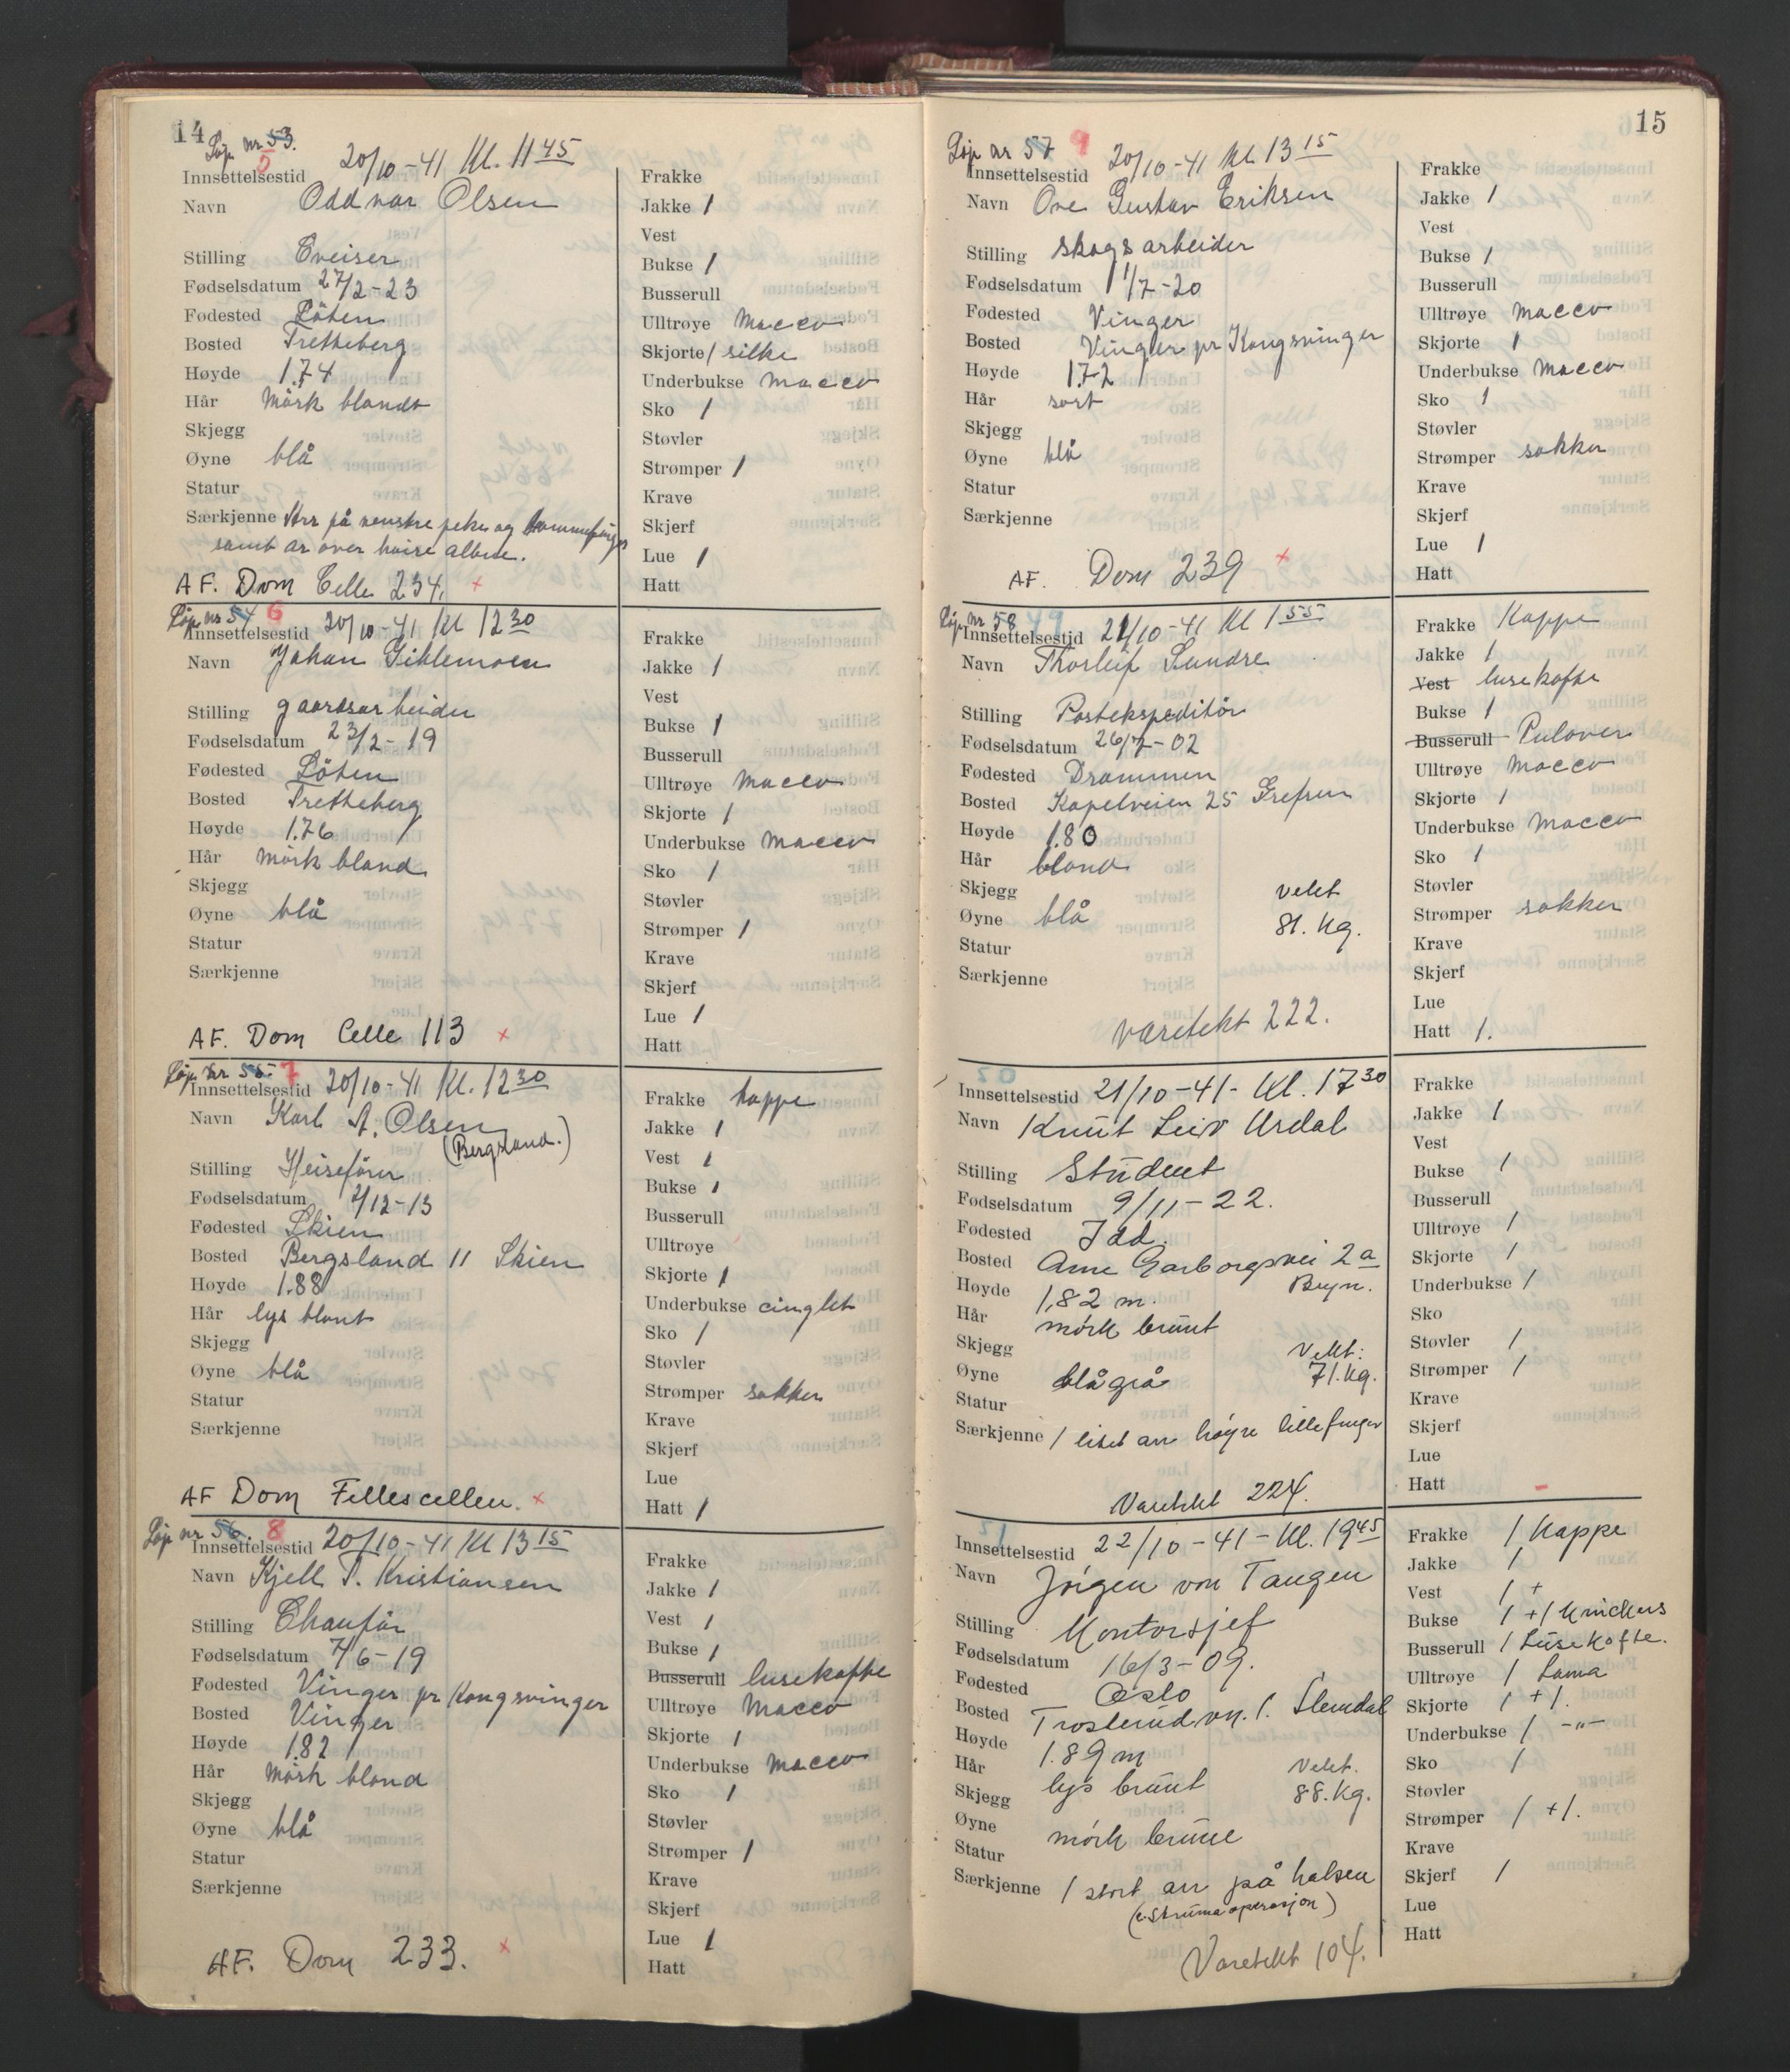 14
Løp nr 53.
Innsettelsestid 20/10-41 Kl. 11 45
Navn Oddvar Olsen
Stilling Sveiser
Fødselsdatum 27/2-23
Fødested Löten
Bosted Tretteberg
Høyde 1.74
Hår Mörk blandt
Skjegg
Øyne blå
Statur
Særkjenne Arr på venstre peke og tommefinger
samt ar over høire albue.
AF. Dom Celle 234.
Frakke
Jakke 1
Vest
Bukse 1
Busserull
Ulltrøye Macco
Skjorte 1 silke
Underbukse macco
Sko 1
Støvler
Strømper 1
Krave
Skjerf
Lue 1
Hatt
Løp nr 54 6
Innsettelsestid 20/10-41 Kl 12 30
Navn Johan Giklemoen
Stilling gaardsarbeider
Fødselsdatum 23/2-19
Fødested Löten
Bosted Tretteberg
Høyde 1.76
Hår mörk bland
Skjegg
Øyne blå
Statur
Særkjenne
AF. Dom Celle 113
Frakke
Jakke 1
Vest
Bukse 1
Busserull
Ulltrøye Macco
Skjorte 1
Underbukse Macco
Sko 1
Støvler
Strømper 1
Krave
Skjerf
Lue 1
Hatt
Løp nr 55 7
Innsettelsestid 20/10-41 Kl. 12 30
Navn Karl A. Olsen
(Bergsland.)
Stilling Heisefører
Fødselsdatum 2/12-13
Fødested Skien
Bosted Bergsland 11 Skien
Høyde 1.88
Hår lys blont
Skjegg
Øyne blå
Statur
Særkjenne
AF Dom Fellescellen.
Frakke kappe
Jakke 1
Vest 1
Bukse 1
Busserull
Ulltrøye
Skjorte 1
Underbukse cinglet
Sko 1
Støvler
Strømper sokker
Krave
Skjerf
Lue
Hatt 1
Løp nr 56. 8
Innsettelsestid 20/10-41 Kl 13 15
Navn Kjell T. Kristiansen
Stilling Chauför
Fødselsdatum 7/6-19
Fødested Vinger pr Kongsvinger
Bosted Vinger
Høyde 1.82
Hår Mörk bland
Skjegg
Øyne blå
Statur
Særkjenne
AF. Dom 233.
Frakke
Jakke 1
Vest 1
Bukse 1
Busserull lusekofte
Ulltrøye Macco
Skjorte 1
Underbukse Macco
Sko 1
Støvler
Strømper 1
Krave
Skjerf
Lue 1
Hatt
15
Løp nr 57 9
Innsettelsestid 20/10-41 Kl 13 15
Navn Ove Gustav Eriksen
Stilling skogsarbeider
Fødselsdatum 11/7-20
Fødested Vinger
Bosted Vinger pr Kongsvinger
Høyde 1.72
Hår sort
Skjegg
Øyne blå
Statur
Særkjenne
AF. Dom 239
Frakke
Jakke 1
Vest
Bukse 1
Busserull
Ulltrøye Macco
Skjorte 1
Underbukse Macco
Sko 1
Støvler
Strømper sokker
Krave
Skjerf
Lue 1
Hatt
Løp nr 58 49
Innsettelsestid 21/10-41 Kl 1 55
Navn Thorleif Sundre
Stilling Postekspeditör
Fødselsdatum 26/7-02
Fødested Drammen
Bosted Kapelveien 25 Grefsen
Høyde 1.80
Hår bland
Skjegg
Øyne blå
Vekt
81. Kg.
Statur
Særkjenne
varetekt 222.
Frakke Kappe
Jakke 1
Vest lusekofte
Bukse 1
Busserull Pulover
Ulltrøye Macco
Skjorte 1
Underbukse Macco
Sko 1
Støvler
Strømper sokker
Krave
Skjerf
Lue
Hatt 1.
50
Innsettelsestid 21/10-41- Kl. 17 30
Navn Knut Leiv Urdal
Stilling Student
Fødselsdatum 9/11-22.
Fødested Idd.
Bosted Arne Garborgsvei 2a
Bryn.
Høyde 1,82 m.
Hår mörk brunt
Skjegg
Vekt:
71. Kg.
Øyne blågrå
Statur
Særkjenne 1 litet arr høyre lillefinger
Varetekt 224.
Frakke
Jakke 1
Vest
Bukse 1
Busserull
Ulltrøye 1
Skjorte 1
Underbukse 1
Sko
Støvler 1
Strømper 1
Krave
Skjerf
Lue
Hatt
51
Innsettelsestid 22/10-41- Kl. 19 45
Navn Jörgen von Tangen
Stilling Kontorsjef
Fødselsdatum 16/3-09.
Fødested Oslo
Bosted Trosterudvn. 1. Slemdal
Høyde 1.89 m
Hår lys brunt
Vekt.
88. Kg.
Skjegg
Øyne mörk brune
Statur
Særkjenne 1 stort arr på halsen
(e. Struma operasjon)
Varetekt 104.
Frakke 1 Kappe
Jakke 1
Vest 1 +
Bukse 1 +1 Knickers
Busserull 1 Lusekofte.
Ulltrøye 1 Lama
Skjorte 1 +1.
Underbukse 1 -"-
Sko 1
Støvler
Strømper 1 +1.
Krave
Skjerf 1
Lue
Hatt